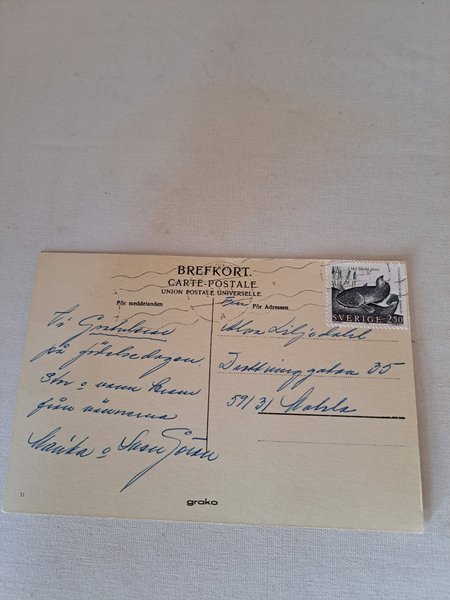 BREFKORT.
CARTE-POSTALE.
UNION POSTALE UNIVERSELLE.
För meddelanden
För Adressen
SVERIGE 250
Vi Gratulerar
på födelsedagen.
Stor o varm kram
från vännerna
Marika o Sven Göran
Alva Liljedahl
35
591 31 Motala
grako